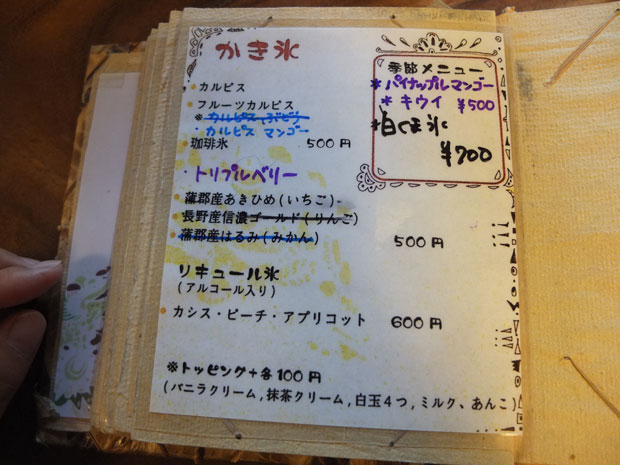 かき氷
・カルピス
・フルーツカルピス
※カルピスぶどう
・カルピス マンゴー
珈琲氷 500円
・トリプルベリー
・蒲郡産あきひめ(いちご)
・長野産信濃ゴールド(りんご)
・蒲郡産はるみ(みかん) 500円
リキュール氷
(アルコール入り)
・カシス・ピーチ・アプリコット 600円
※トッピング+各100円
(バニラクリーム,抹茶クリーム,白玉4つ,ミルク、あんこ)
季節メニュー
*パイナップルマンゴー
*キウイ ¥500
*白くま氷
¥700